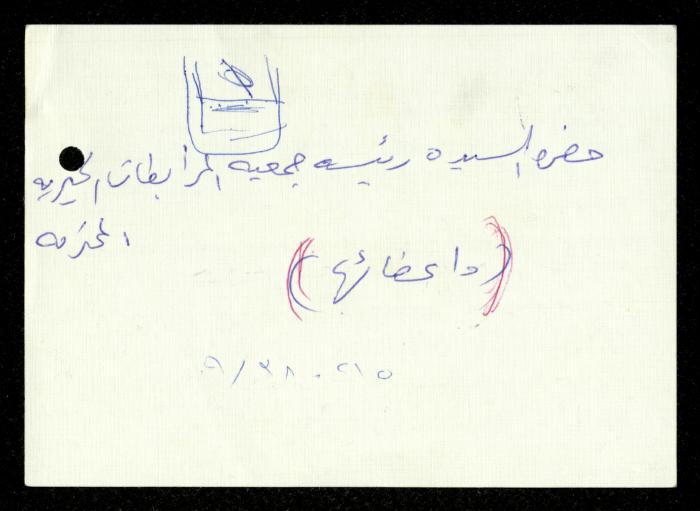 حضرة السيدة رئيسة جمعية المرابطات الخيرية
المحترمة
(واعضائها)